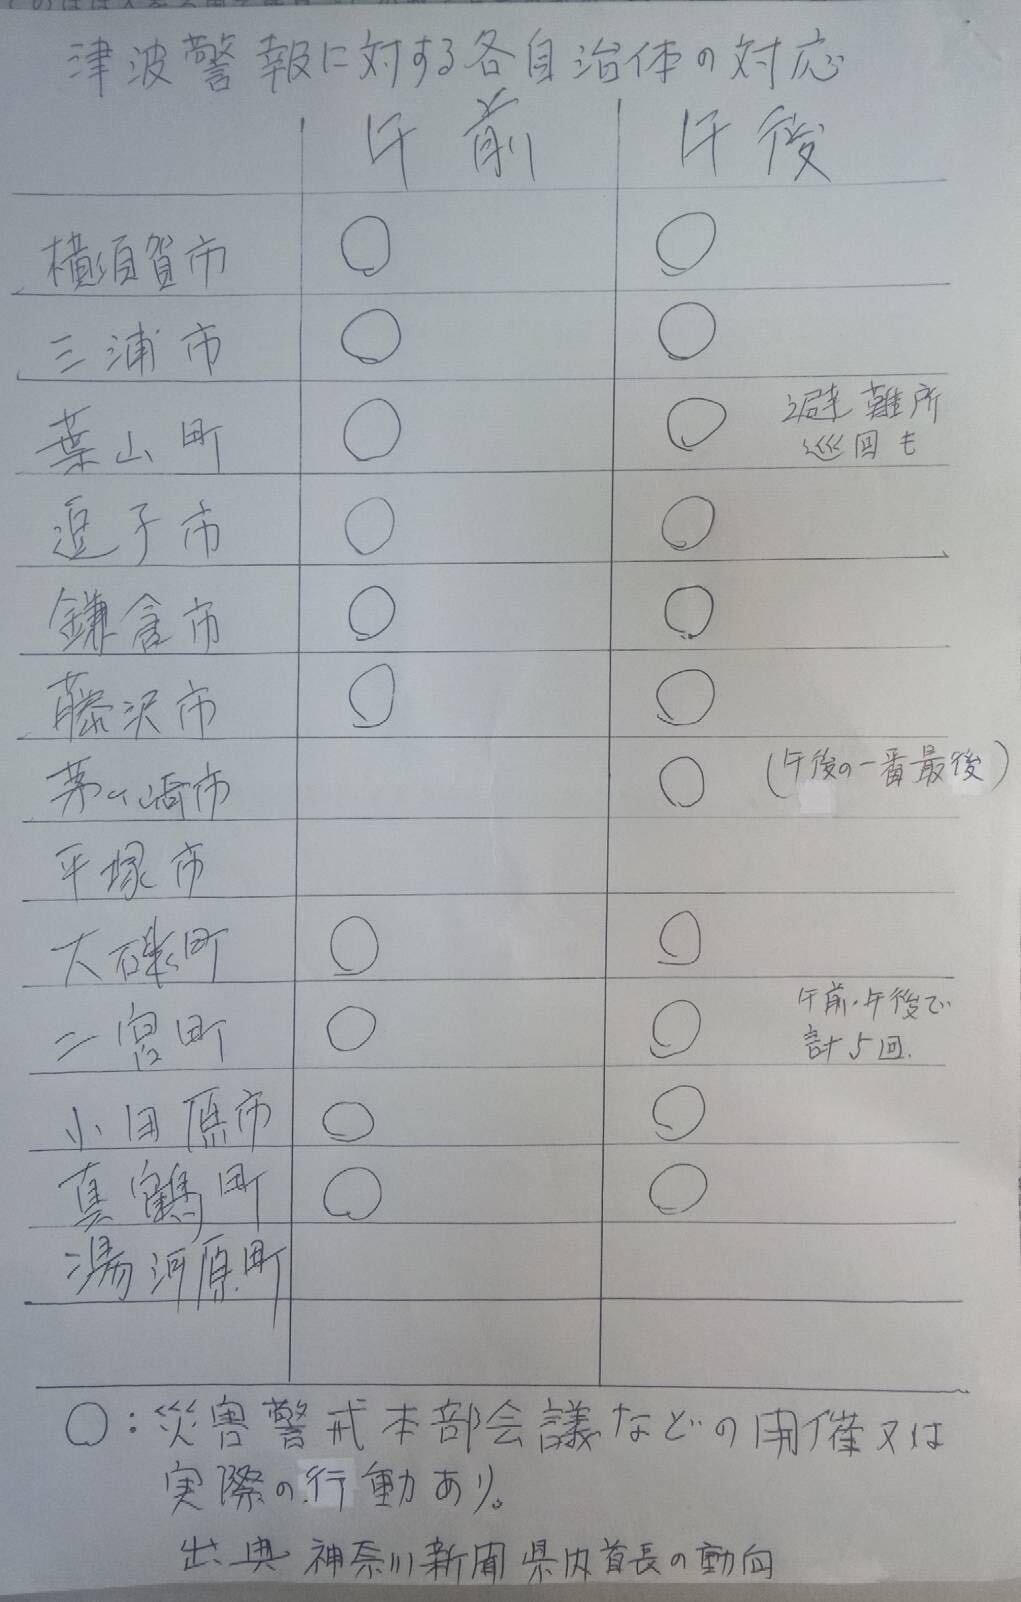 津波警報に対する各自治体の対応
午前 午後
横須賀市 ○ ○
三浦市 ○ ○
葉山町 ○ ○ 避難所
巡回も
逗子市 ○ ○
鎌倉市 ○ ○
藤沢市 ○ ○
茅ヶ崎市 ○ (午後の一番最後)
平塚市
大磯町 ○ ○
二宮町 ○ ○ 午前・午後で
計5回.
小田原市 ○ ○
真鶴町 ○ ○
湯河原町
○:災害警戒本部会議などの開催又は
実際の行動あり。
出典 神奈川新聞 県内首長の動向